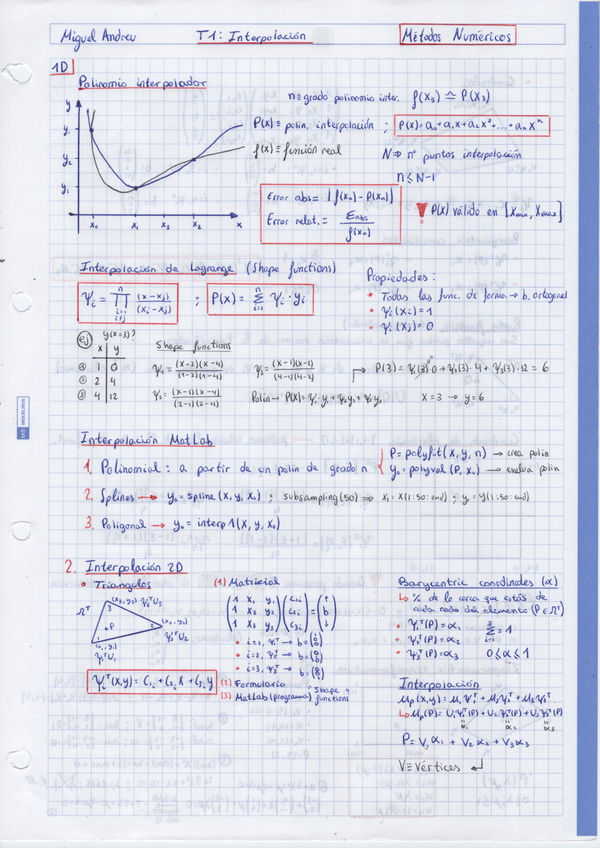 Miguel Andreu T1: Interpolación Métodos Numéricos
1D
Polinomio interpolador
n ≡ grado polinomio inter. f(x₃) ≃ P(x₃)
P(x) ≡ polin. interpolación ; P(x) = a₀ + a₁x + a₂x² + ... + aₙxⁿ
f(x) ≡ función real
N ⇒ nº puntos interpolación
n ≤ N-1
y
y₂
y₁
x₀ x₁ x₂ x₃ x
Error abs = |f(xₙ) - P(xₙ)|
Error relat. = Eabs / f(xₙ)
! P(x) válido en [xmin, xmax]
Interpolación de Lagrange (Shape functions)
Ψᵢ = ∏ (x-xⱼ)/(xᵢ-xⱼ) ; P(x) = Σ Ψᵢ · yᵢ
Propiedades:
• Todas las func. de forma → b. ortogonal
• Ψᵢ(xᵢ) = 1
• Ψᵢ(xⱼ) = 0
ej y(x=3)?
x y
① 1 0
② 2 4
③ 4 12
Shape functions
Ψ₁ = (x-2)(x-4) / (1-2)(1-4)
Ψ₂ = (x-1)(x-4) / (2-1)(2-4)
Ψ₃ = (x-1)(x-2) / (4-1)(4-2)
Polin → P(x) = Ψ₁·y₁ + Ψ₂y₂ + Ψ₃y₃
P(3) = Ψ₁(3)·0 + Ψ₂(3)·4 + Ψ₃(3)·12 = 6
x = 3 → y = 6
Interpolación MatLab
1. Polinomial: a partir de un polin de grado n
P = polyfit(x, y, n) → crea polin
y₀ = polyval(P, x₀) → evalua polin
2. Splines → y₀ = spline(x, y, x₀) ; subsampling (50) ⇒ x₁ = x(1:50:end) ; y = y(1:50:end)
3. Poligonal → y₀ = interp1(x, y, x₀)
2. Interpolación 2D
• Triangulos
Ωᵀ
(x₃, y₃) Ψ₃ᵀU₃
(x₂, y₂)
Ψ₂ᵀU₂
(x₁, y₁)
Ψ₁ᵀU₁
1 2 3
• P
Ψᵢᵀ(x,y) = C₁ᵢ + C₂ᵢ x + C₃ᵢ y
(1) Matricial
(1 x₁ y₁) (C₁ᵢ) (↑)
(1 x₂ y₂) (C₂ᵢ) = (b)
(1 x₃ y₃) (C₃ᵢ) (↓)
• i=1, Ψ₁ᵀ → b = (1 0 0)
• i=2, Ψ₂ᵀ → b = (0 1 0)
• i=3, Ψ₃ᵀ → b = (0 0 1)
(2) Formulario
(3) MatLab (programa) → Shape functions
Barycentric coordinates (α)
↳ % de lo cerca que estás de
cada nodo del elemento (P ∈ Ωᵀ)
• Ψ₁ᵀ(P) = α₁
• Ψ₂ᵀ(P) = α₂
• Ψ₃ᵀ(P) = α₃
Σ = 1
0 ≤ α ≤ 1
Interpolación
μₚ(x,y) = μ₁Ψ₁ᵀ + μ₂Ψ₂ᵀ + μ₃Ψ₃ᵀ
↳ μ(P) = U₁Ψ₁ᵀ(P) + U₂Ψ₂ᵀ(P) + U₃Ψ₃ᵀ(P)
α₁ α₂ α₃
P = V₁α₁ + V₂α₂ + V₃α₃
V ≡ Vértices